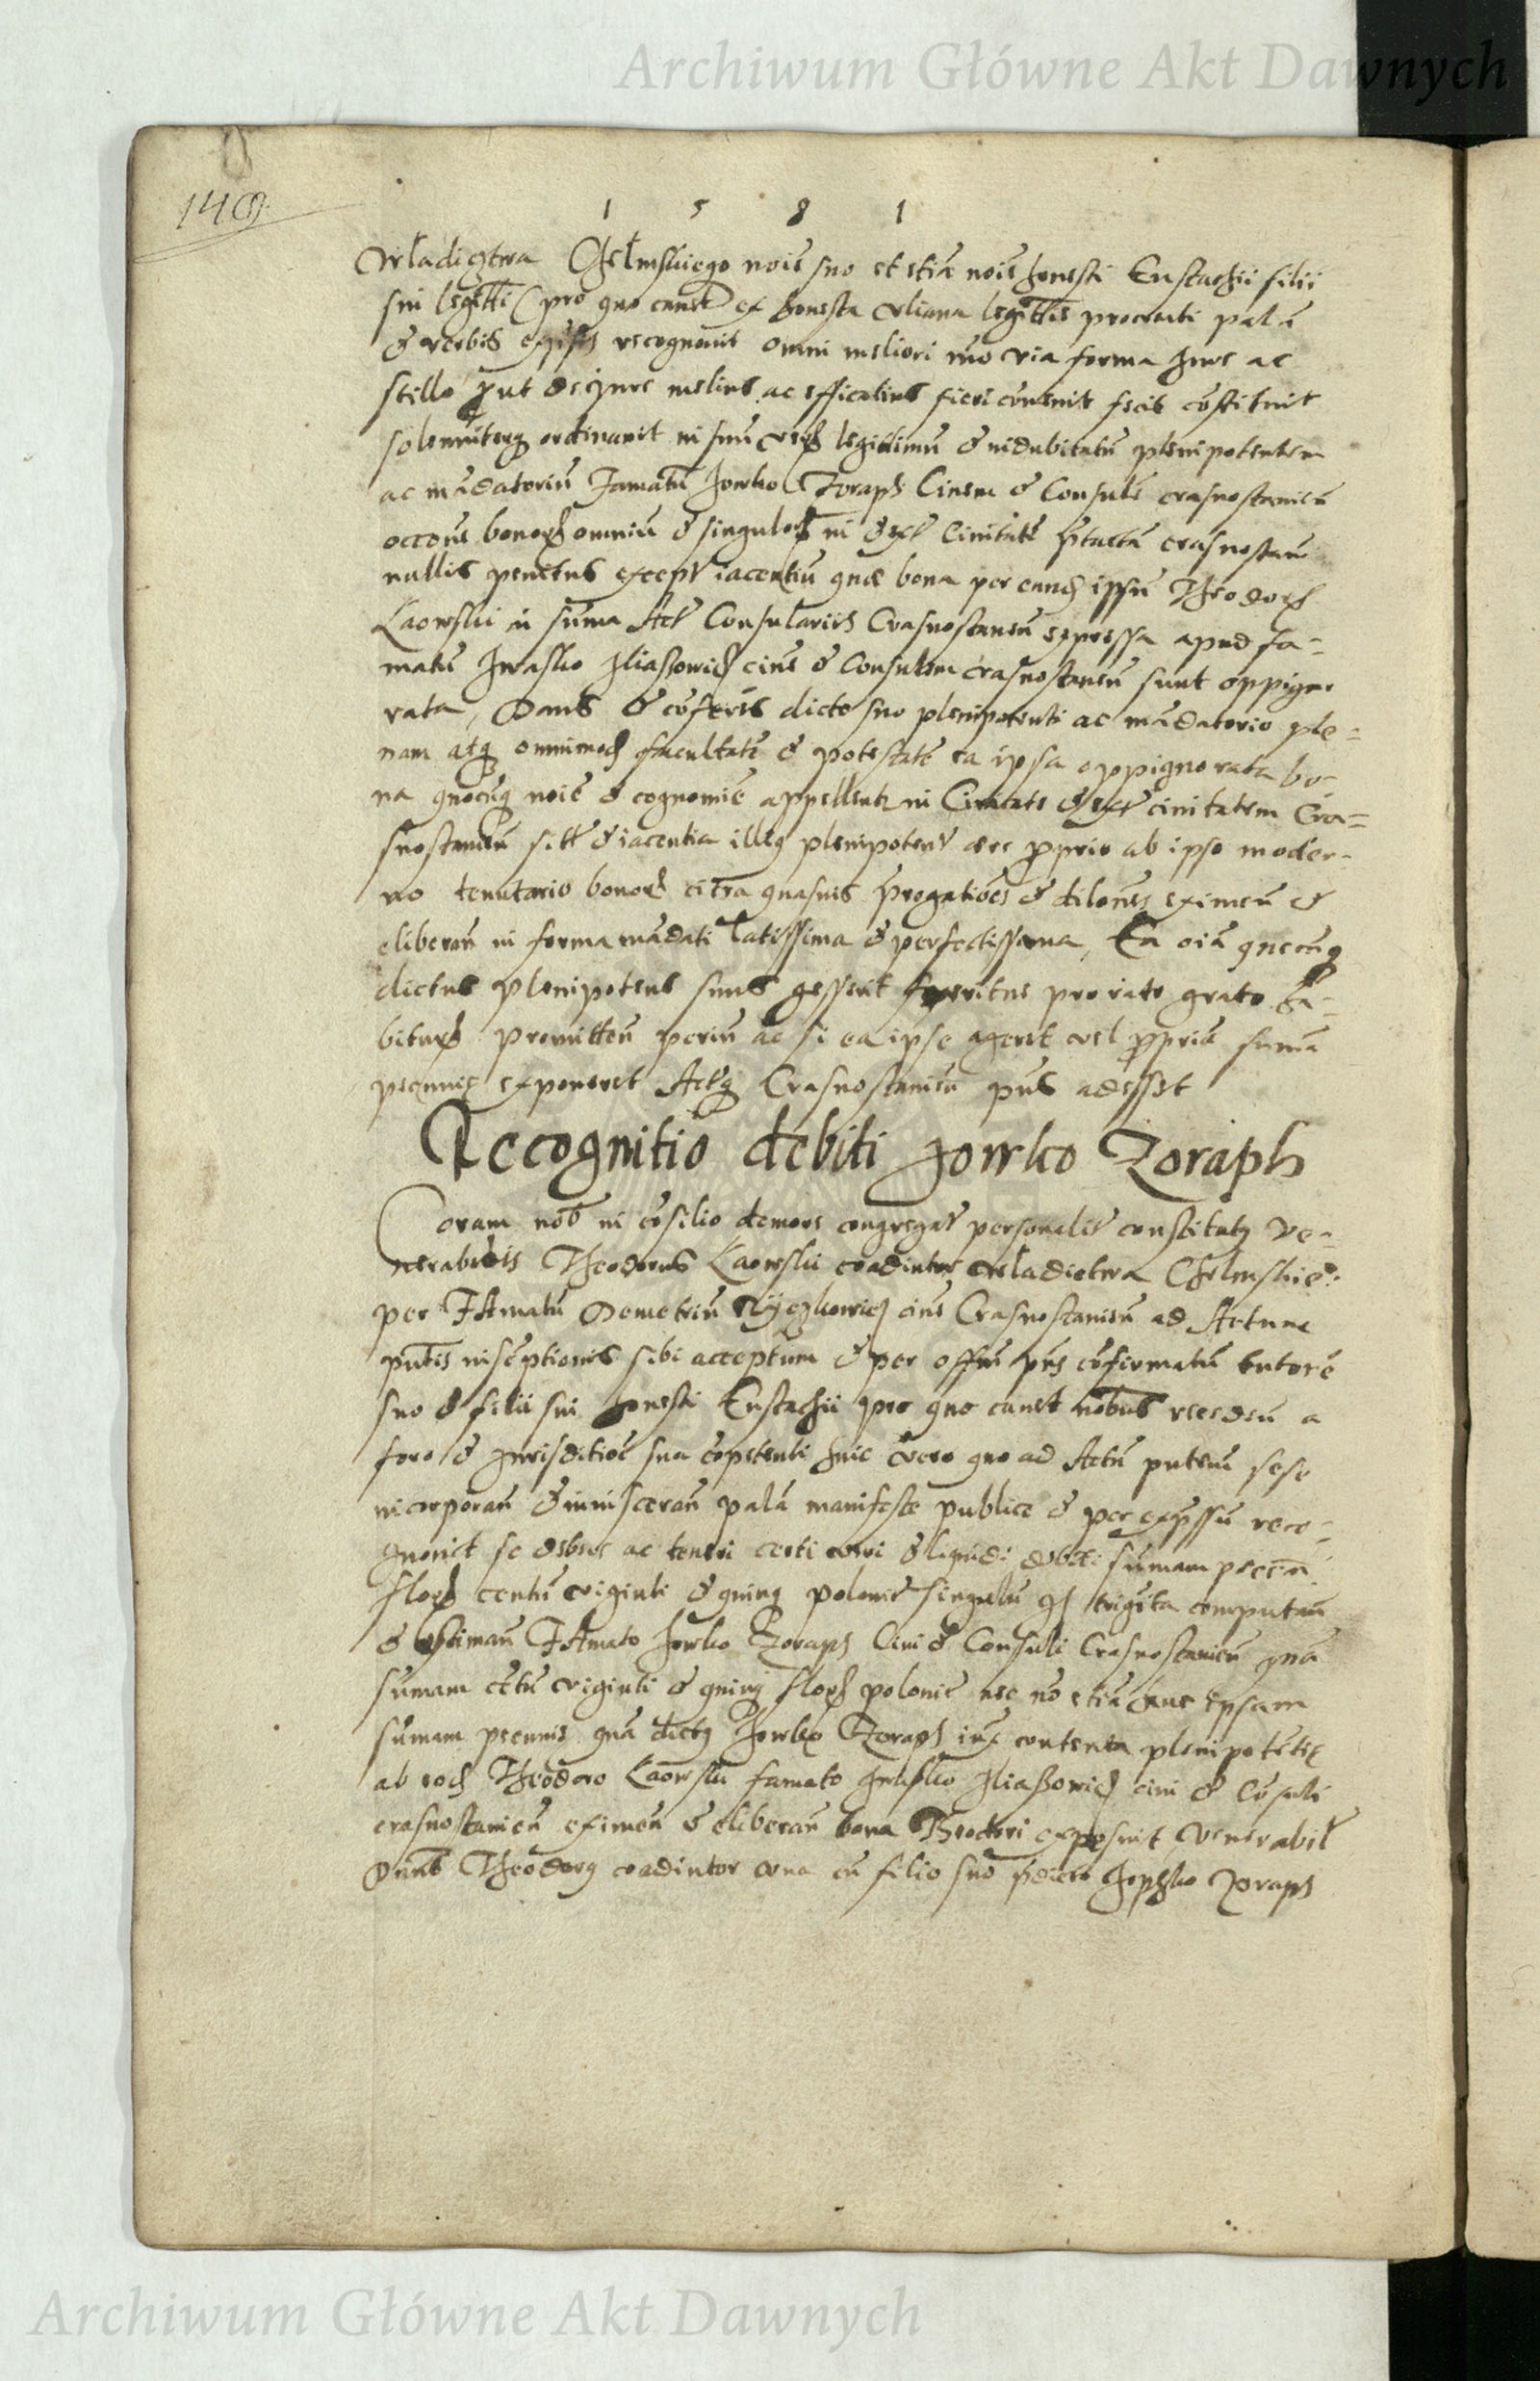 Archiwum Główne Akt Dawnych
149
1 5 8 1
Wladictwa Chelmskiego noie suo et etiā nois honesti Eustachii filii
sui legittī (pro quo cauet) ex honesta Uliana legittie procreati palā
& verbis exp̄sis recognouit omni meliori mō via forma iure ac
stillo put de iure melius ac efficatius fieri conuenit fecit cōstituit
solenniterq ordinauit in suū verū legittimū & indubitatū plenipotentem
ac mādatoriū famatū Jowko Zoraph Ciuem & Consulē crasnostauien̄
bonoꝝ omniū & singuloꝝ in & extr̄ Ciuitatē crasnostauien̄
nullis penitus except̄ iacentiū quæ bona per eundē ipsū Theodoꝝ
Kaowski in suma Act̄ Consularib Crasnostauien̄ expressa apud fa=
matū Iwasko Iliaszowicz ciuē & Consulem crasnostauien̄ sunt oppigno
rata, Dans & cōferēs dicto suo plenipotenti ac mādatorio ple=
nam atq omnimodā facultatē & potestatē ea ipsa oppignorata bo-
na quocūq noīe & cognomīe appellent in Ciuitate & extr̄ ciuitatem Cra=
snostauien̄ sitt & iacentia illeq plenipotens aere pprio ab ipso moder-
no tenutario bonoꝝ citra quasuis prrogatiōes & dilones eximen̄ &
eliberan̄ in forma mādati latissima & perfectissima, Ea oīa quecūq
dictus plenipotens suus gesserit pro rato grato ha=
bituꝝ promitten̄ periū ac si ea ipse ageret vel ppriā sumā
pecunie exponeret Actisq Crasnostauien̄ pns adesset
Recognitio debiti Jowko Zoraph
Coram nob in cōsilio de more congregat̄ personalit̄ constitut Ve=
nerabilis Theodorus Kaowski coadiutor wladictwa Chelmskie
per Famatū Demetriū ciuē Crasnostauien̄ ad Actum
pntis inscptionis sibi acceptum & per offm pns cōfirmatū tutorē
suo & filii sui honesti Eustachii pro quo cauet nobus receden̄ a
foro & iurisditiōe sua cōpetenti huic vero quo ad Actū pntem sese
incorporan̄ & inuisceran̄ palā manifeste publice & per expssū reco=
gnouit se debere ac teneri certi veri & liquidi debiti sumam pecuń
floꝝ centū viginti & quinq polonic̄ singulū gꝛ trigita computan̄
& estiman̄ Famato Jowko Zoraph Ciui & Consuli Crasnostauien̄ quā
sumam cētū viginti & quinq floꝝ polonic̄ nec nō etiā hanc ipsam
sumam pecunie quā dict Jowko Zoraph iux contenta plenipotētie
ab eodē Theodoro Kaowski famato Iwasko Iliaszowicz ciui & Cōsuli
crasnostauien̄ eximen̄ & eliberan̄ bona Theodori exposuit Venerabil
Dnus Theodorꝯ coadiutor vna cū filio suo pdicto Zoraph
Archiwum Główne Akt Dawnych